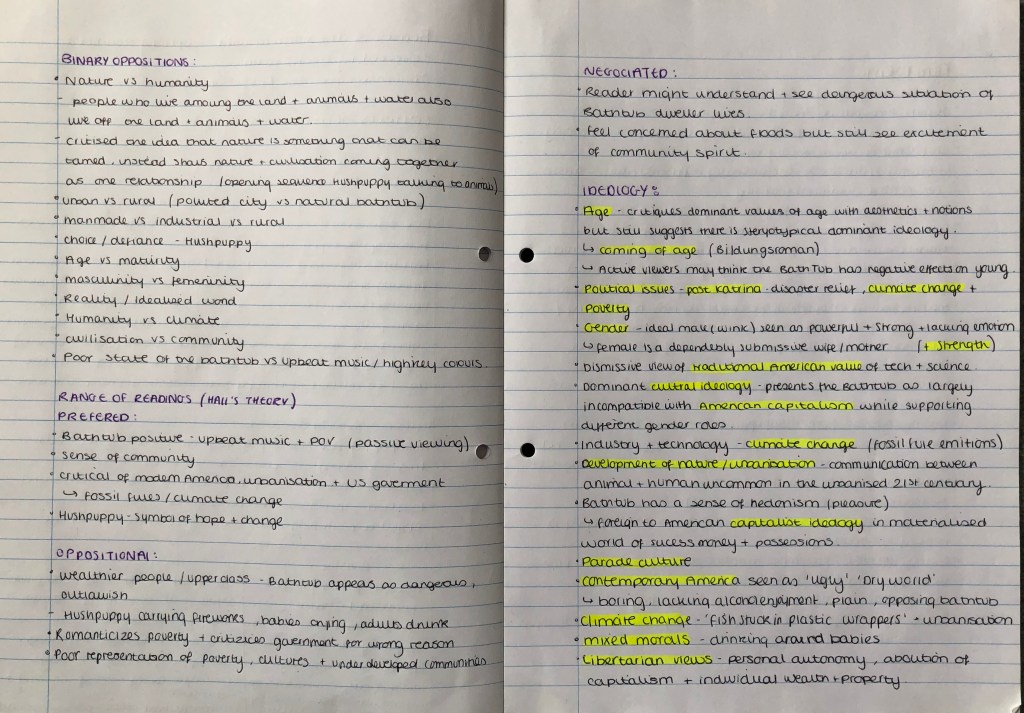 BINARY OPPOSITIONS:
• Nature vs humanity
- people who live amoung the land + animals + water also
live off the land + animals + water.
- critised the idea that nature is something that can be
tamed, instead shows nature + civilisation coming together
as one relationship (opening sequence Hushpuppy talking to animals)
• urban vs rural (polluted city vs natural bathtub)
• manmade vs industrial vs rural
• choice / defiance - Hushpuppy
• Age vs maturity
• masculinity vs femeninity
• Reality / idealised world
• Humanity vs climate
• civilisation vs community
• Poor state of the bathtub vs upbeat music / highkey colours.
RANGE OF READINGS (HALL'S THEORY)
PREFERED:
• Bathtub positive - upbeat music + POV (passive viewing)
• sense of community
• critical of modern America, urbanisation + US goverment
↳ Fossil fules / climate change
• Hushpuppy - symbol of hope + change
OPPOSITIONAL:
• wealthier people / upperclass - Bathtub appears as dangerous,
outlawish
- Hushpuppy carrying fireworks, babies crying, adults drunk
• Romanticizes poverty + critizices government for wrong reason
• Poor representation of poverty, cultures + under developed communities
NEGOCIATED:
• Reader might understand + see dangerous situation of
Bathtub dweller lives.
• Feel concerned about floods but still see excitement
of community spirit.
IDEOLOGY:
• Age - critiques dominant values of age with aesthetics + notions
but still suggests there is steryotypical dominant ideology.
↳ coming of age (Bildungsroman)
↳ Active viewers may think the BathTub has negative effects on young.
• Political issues - post Katrina - disaster relief, climate change +
Poverty
• Gender - ideal male (wink) seen as powerful + strong + lacking emotion
↳ female is a dependebly submissive wife/mother (+ strength)
• Dismissive view of traditional American value of tech + science.
• Dominant cultral ideology - presents the Bathtub as largely
incompatible with American capitalism while supporting
different gender roles.
• Industry + technology - climate change (fossil fule emitions)
• Development of nature/urbanisation - communication between
animal + human uncommon in the urbanised 21st centuary.
• Bathtub has a sense of hedonism (pleasure)
↳ foreign to American capitalist ideology in materialised
world of sucess money + possessions.
• Parade culture
• contemporary America seen as 'ugly' 'Dry world'
↳ boring, lacking alcohol enjoyment, plain, opposing bathtub
• Climate change - 'fish stuck in plastic wrappers' - urbanisation
• mixed morals - drinking around babies
• Libertarian views - personal autonomy, abolition of
capitalism + individual wealth + property.